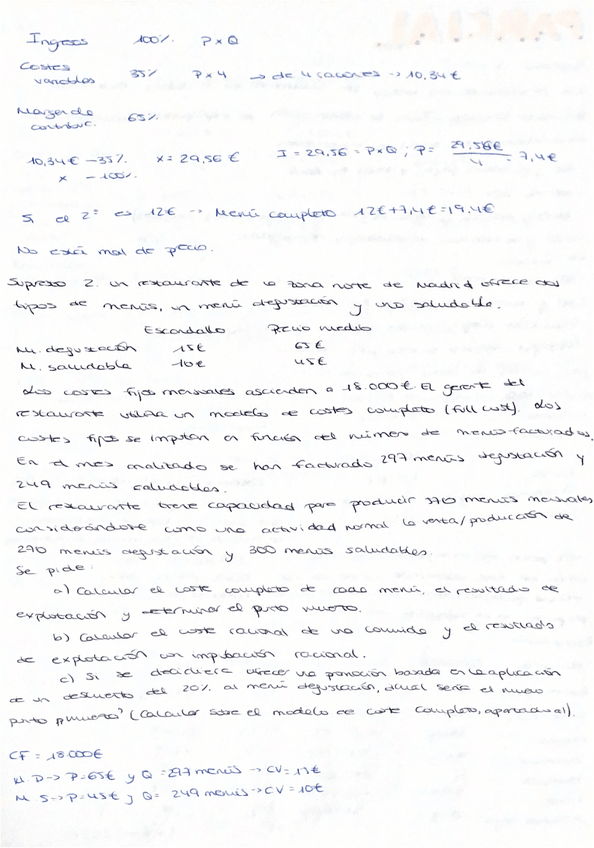 PARCIAL
Ingresos 100% P×Q
Costes variables 35% P×4 → de 4 raciones → 10,34€
Margen de contribuc. 65%
10,34€ – 35% x = 29,56€ I = 29,56 = P×Q ; P = 29,56€ / 4 = 7,4€
x – 100%
Si el 2º es 12€ → Menú completo 12€ + 7,4€ = 19,4€
No está mal de precio.
Supuesto 2. Un restaurante de la zona norte de Madrid ofrece dos
tipos de menús, un menú degustación y uno saludable.
Escandallo Precio medio
M. degustación 15€ 65€
M. saludable 10€ 45€
Los costes fijos mensuales ascienden a 18.000€. El gerente del
restaurante utiliza un modelo de costes completo (full cost). Los
costes fijos se imputan en función del número de menús facturados.
En el mes analizado se han facturado 297 menús degustación y
249 menús saludables.
El restaurante tiene capacidad para producir menús mensuales
considerándose como una actividad normal la venta/producción de
290 menús degustación y 300 menús saludables.
Se pide:
a) Calcular el coste completo de cada menú, el resultado de
explotación y determinar el punto muerto.
b) Calcular el coste racional de una comida y el resultado
de explotación con imputación racional.
c) Si se decidiera ofrecer una promoción basada en la aplicación
de un descuento del 20% al menú degustación, ¿cuál sería el nuevo
punto muerto? (Calcular sobre el modelo de coste completo, apartado a)).
CF = 18.000€
M. D → P = 65€ y Q = 297 menús → CV = 15€
M. S → P = 45€ y Q = 249 menús → CV = 10€